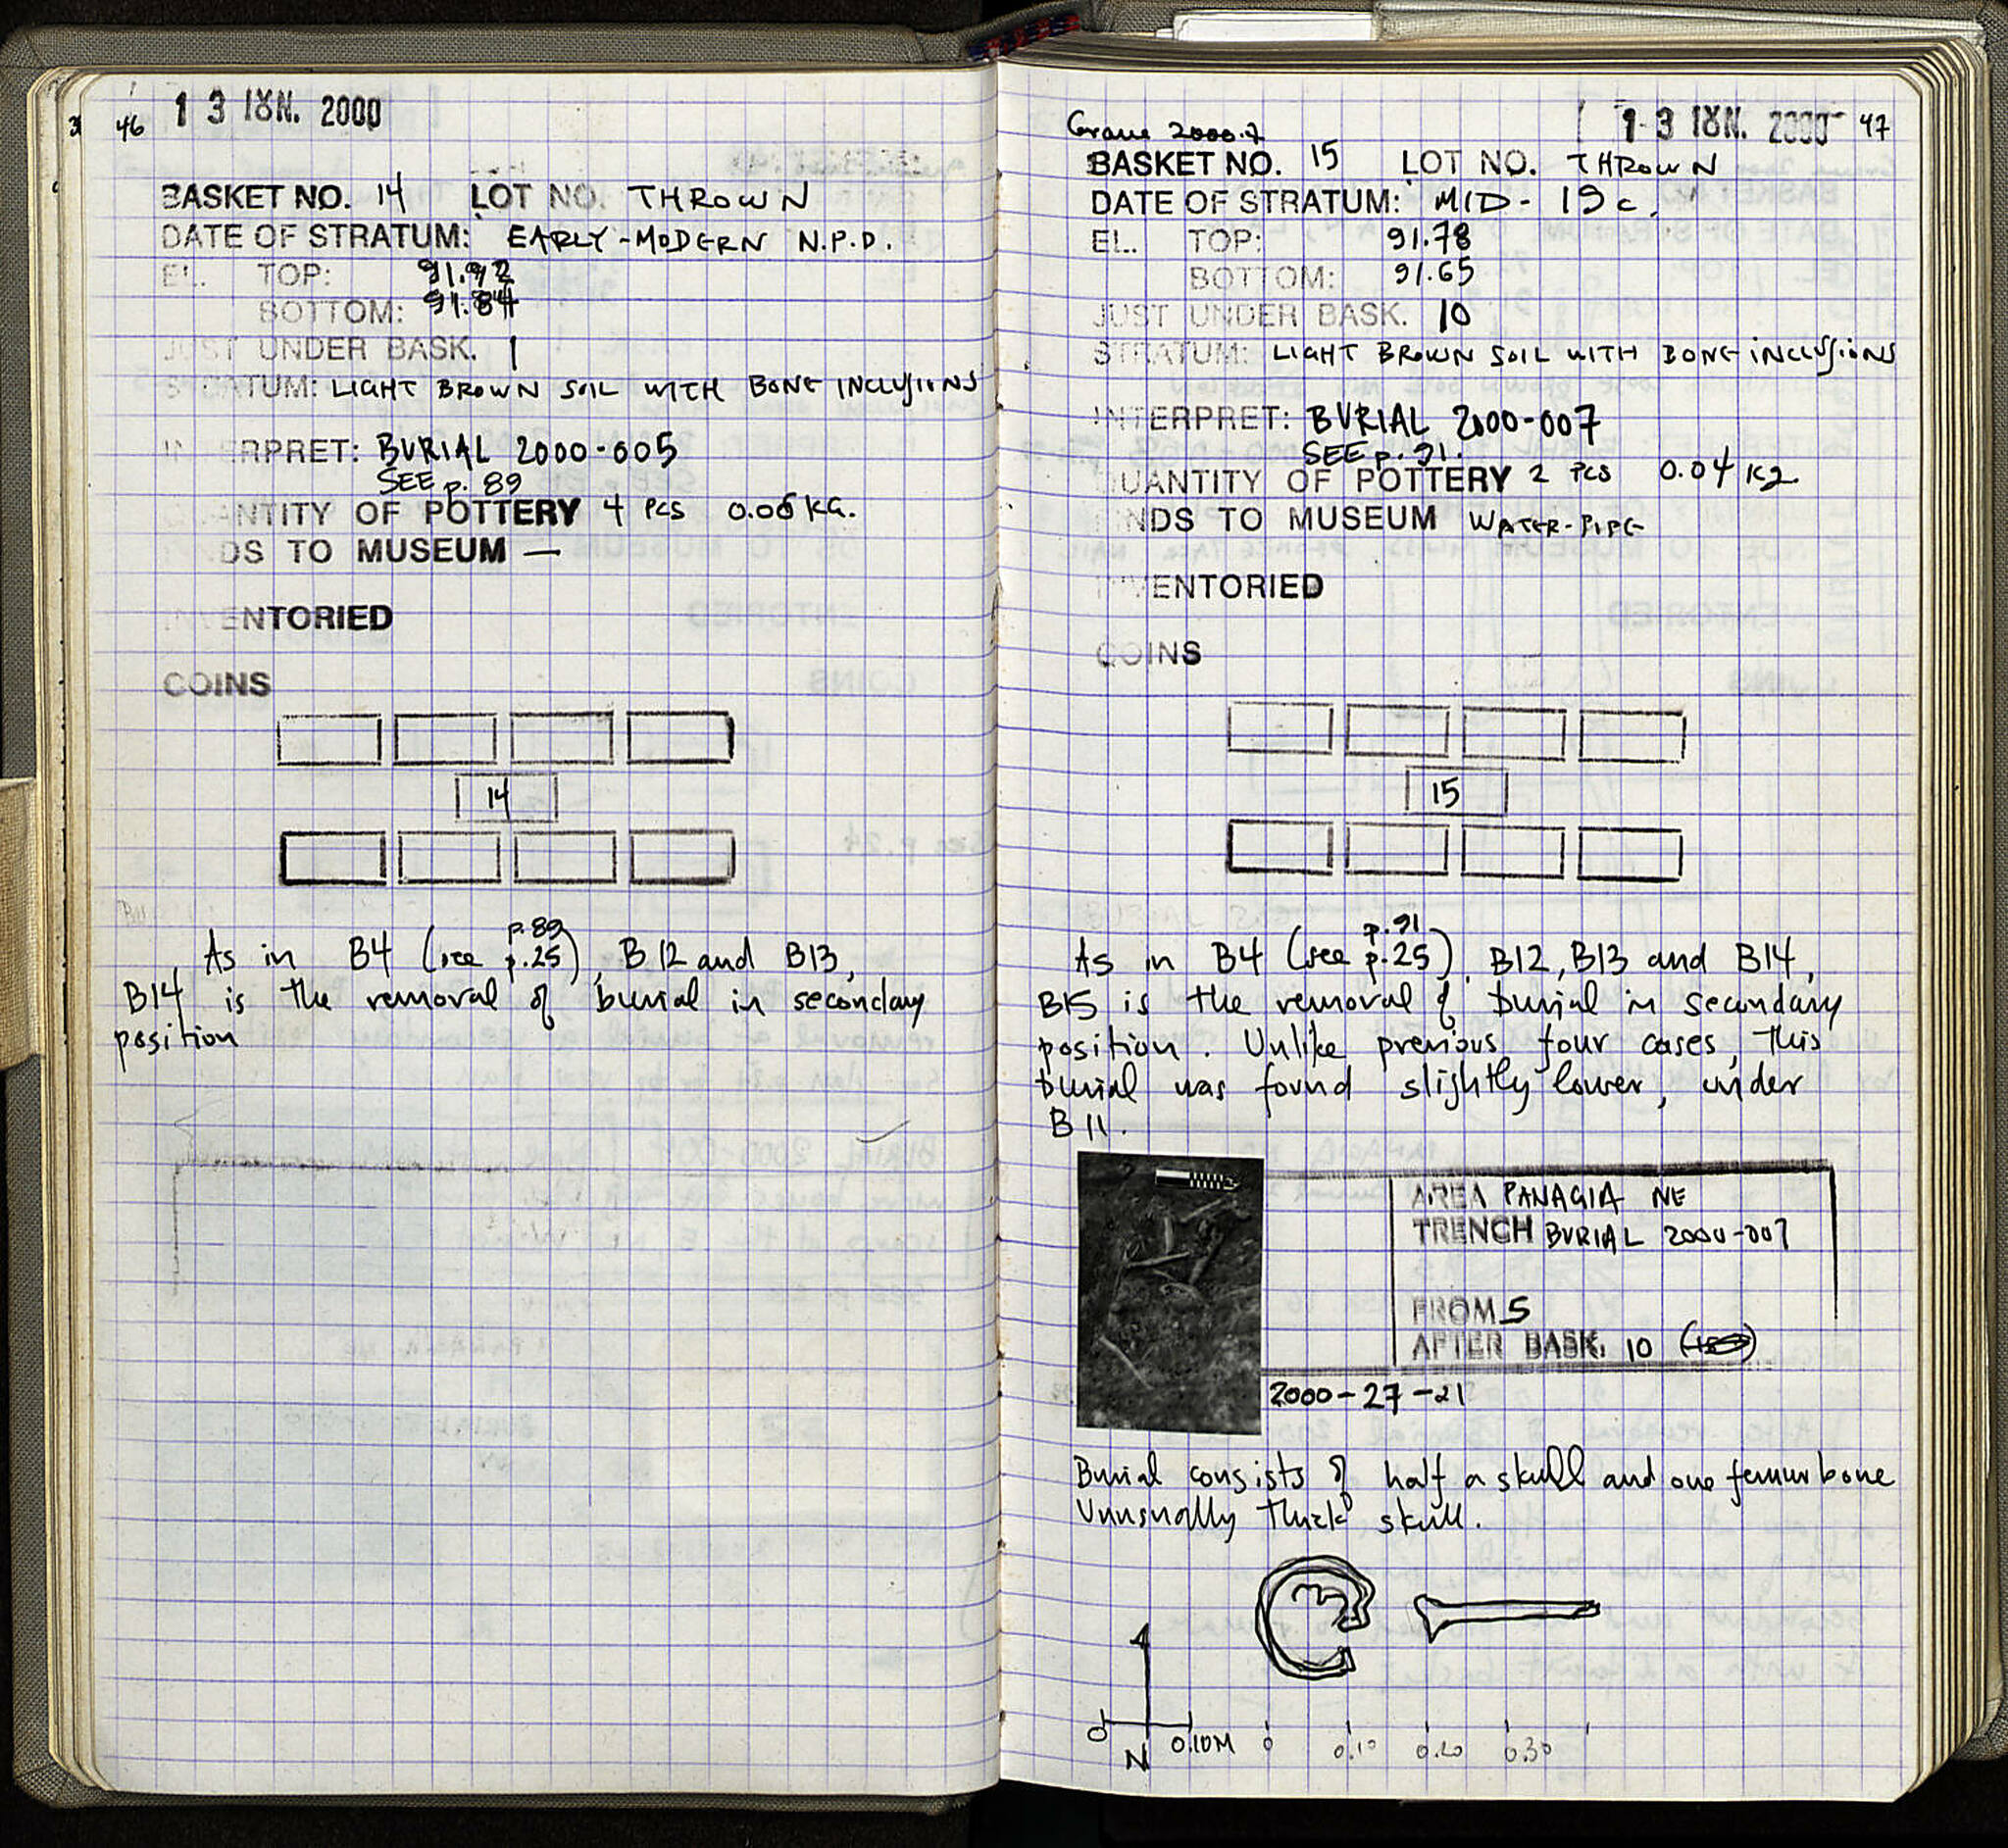 46 13 ΙΟΥΝ. 2000
BASKET NO. 14 LOT NO. THROWN
DATE OF STRATUM: EARLY-MODERN N.P.D.
EL. TOP: 91.92
BOTTOM: 91.84
JUST UNDER BASK. 1
STRATUM: LIGHT BROWN SOIL WITH BONE INCLUSIONS
INTERPRET: BURIAL 2000-005
SEE p. 89
QUANTITY OF POTTERY 4 PCS 0.06 KG.
FINDS TO MUSEUM —
INVENTORIED
COINS
14
p.89
As in B4 (see p.25), B12 and B13,
B14 is the removal of burial in secondary
position
Grave 2000.7
13 ΙΟΥΝ. 2000 47
BASKET NO. 15 LOT NO. THROWN
DATE OF STRATUM: MID-19c.
EL. TOP: 91.78
BOTTOM: 91.65
JUST UNDER BASK. 10
STRATUM: LIGHT BROWN SOIL WITH BONE INCLUSIONS
INTERPRET: BURIAL 2000-007
SEE p. 91.
QUANTITY OF POTTERY 2 PCS 0.04 Kg.
FINDS TO MUSEUM WATER-PIPE
INVENTORIED
COINS
15
p.91
As in B4 (see p.25), B12, B13 and B14,
B15 is the removal of burial in secondary
position. Unlike previous four cases, this
burial was found slightly lower, under
B11.
AREA PANAGIA NE
TRENCH BURIAL 2000-007
FROM S
AFTER BASK. 10
2000-27-21
Burial consists of half a skull and one femur bone
Unusually thick skull.
0 N 0.10M 0 0.10 0.20 0.30